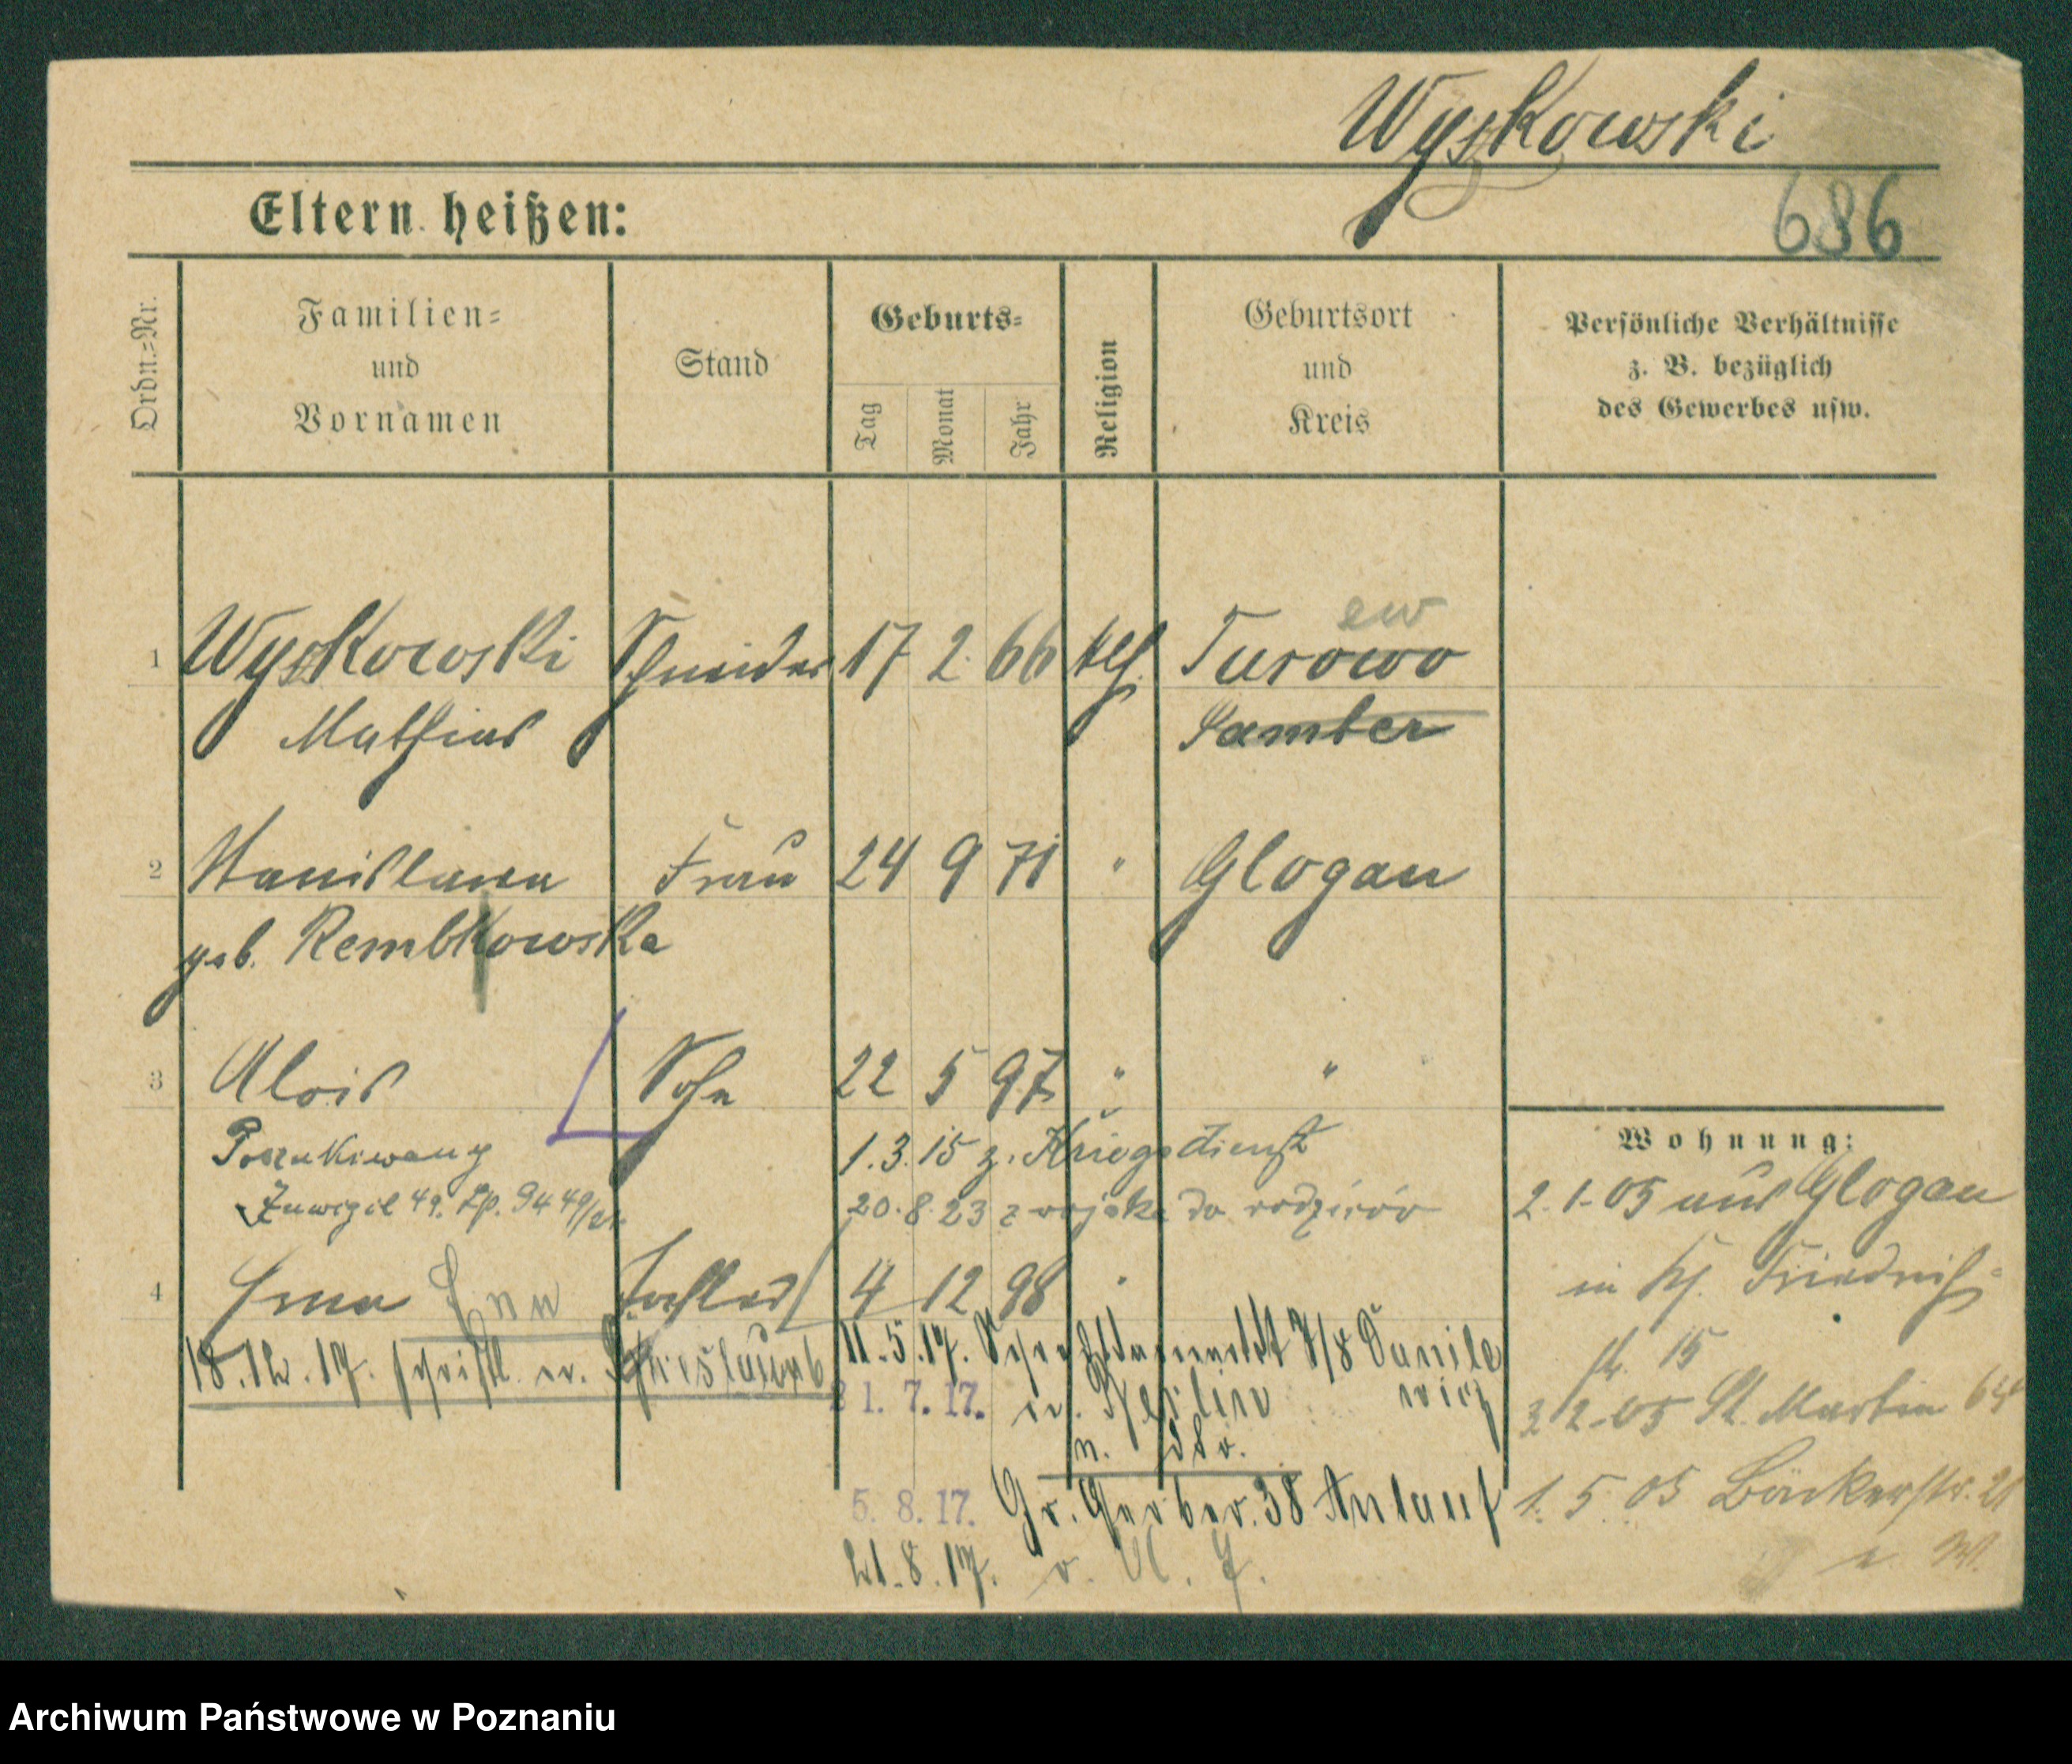 Wyskowski
686
Eltern heißen:
Ordn.=Nr.
Familien=
und
Vornamen
Stand
Geburts=
Tag
Monat
Jahr
Religion
Geburtsort
und
Kreis
Persönliche Verhältnisse
z. B. bezüglich
des Gewerbes usw.
ew
1 Wyskowski Schneider 17 2 66 kth. Turowo
Mathias Samter
2 Stanislawa Frau 24 9 71 " Glogau
geb. Rembkowska
3 Alois Sohn 22 5 97 " "
Poszukiwany 1.3.15 z. Kriegsdienst
49. 20.8.23 z wojska do rodziców
4 Erna Tochter 4 12 98 "
18.12.17. schriftl. 11.5.17. 7/8 Danile
wicz
21. 7. 17. Berlin
n.
5. 8. 17. Gr. Gerber. 38 Anlauf
21.8.17. v. A.
Wohnung:
2.1.05 aus Glogau
in Kf. Friedrich=
str. 15
2.05 St. Martin
1. 5. 05 Bäckerstr. 21
Archiwum Państwowe w Poznaniu